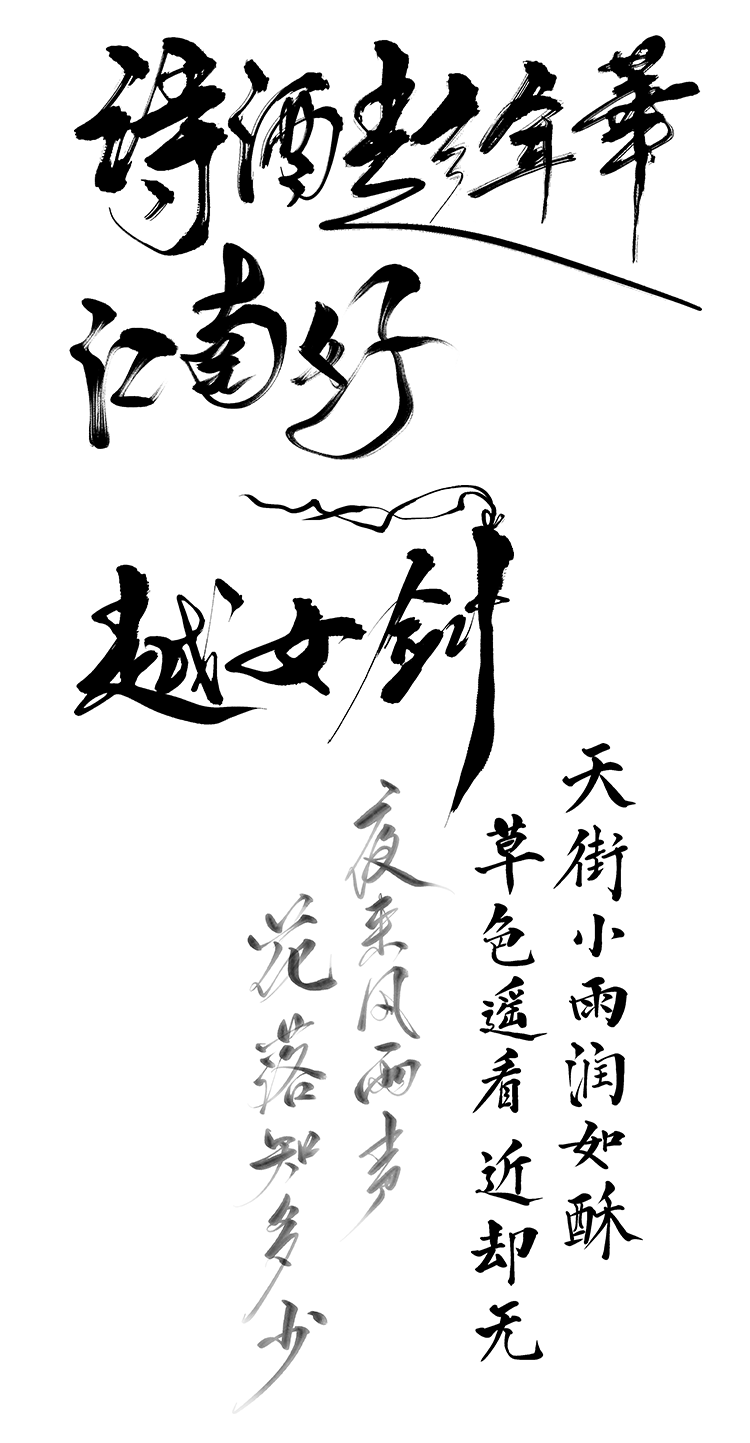 诗酒趁年華
江南好
越女剑
天街小雨润如酥
草色遥看近却无
夜来风雨声
花落知多少